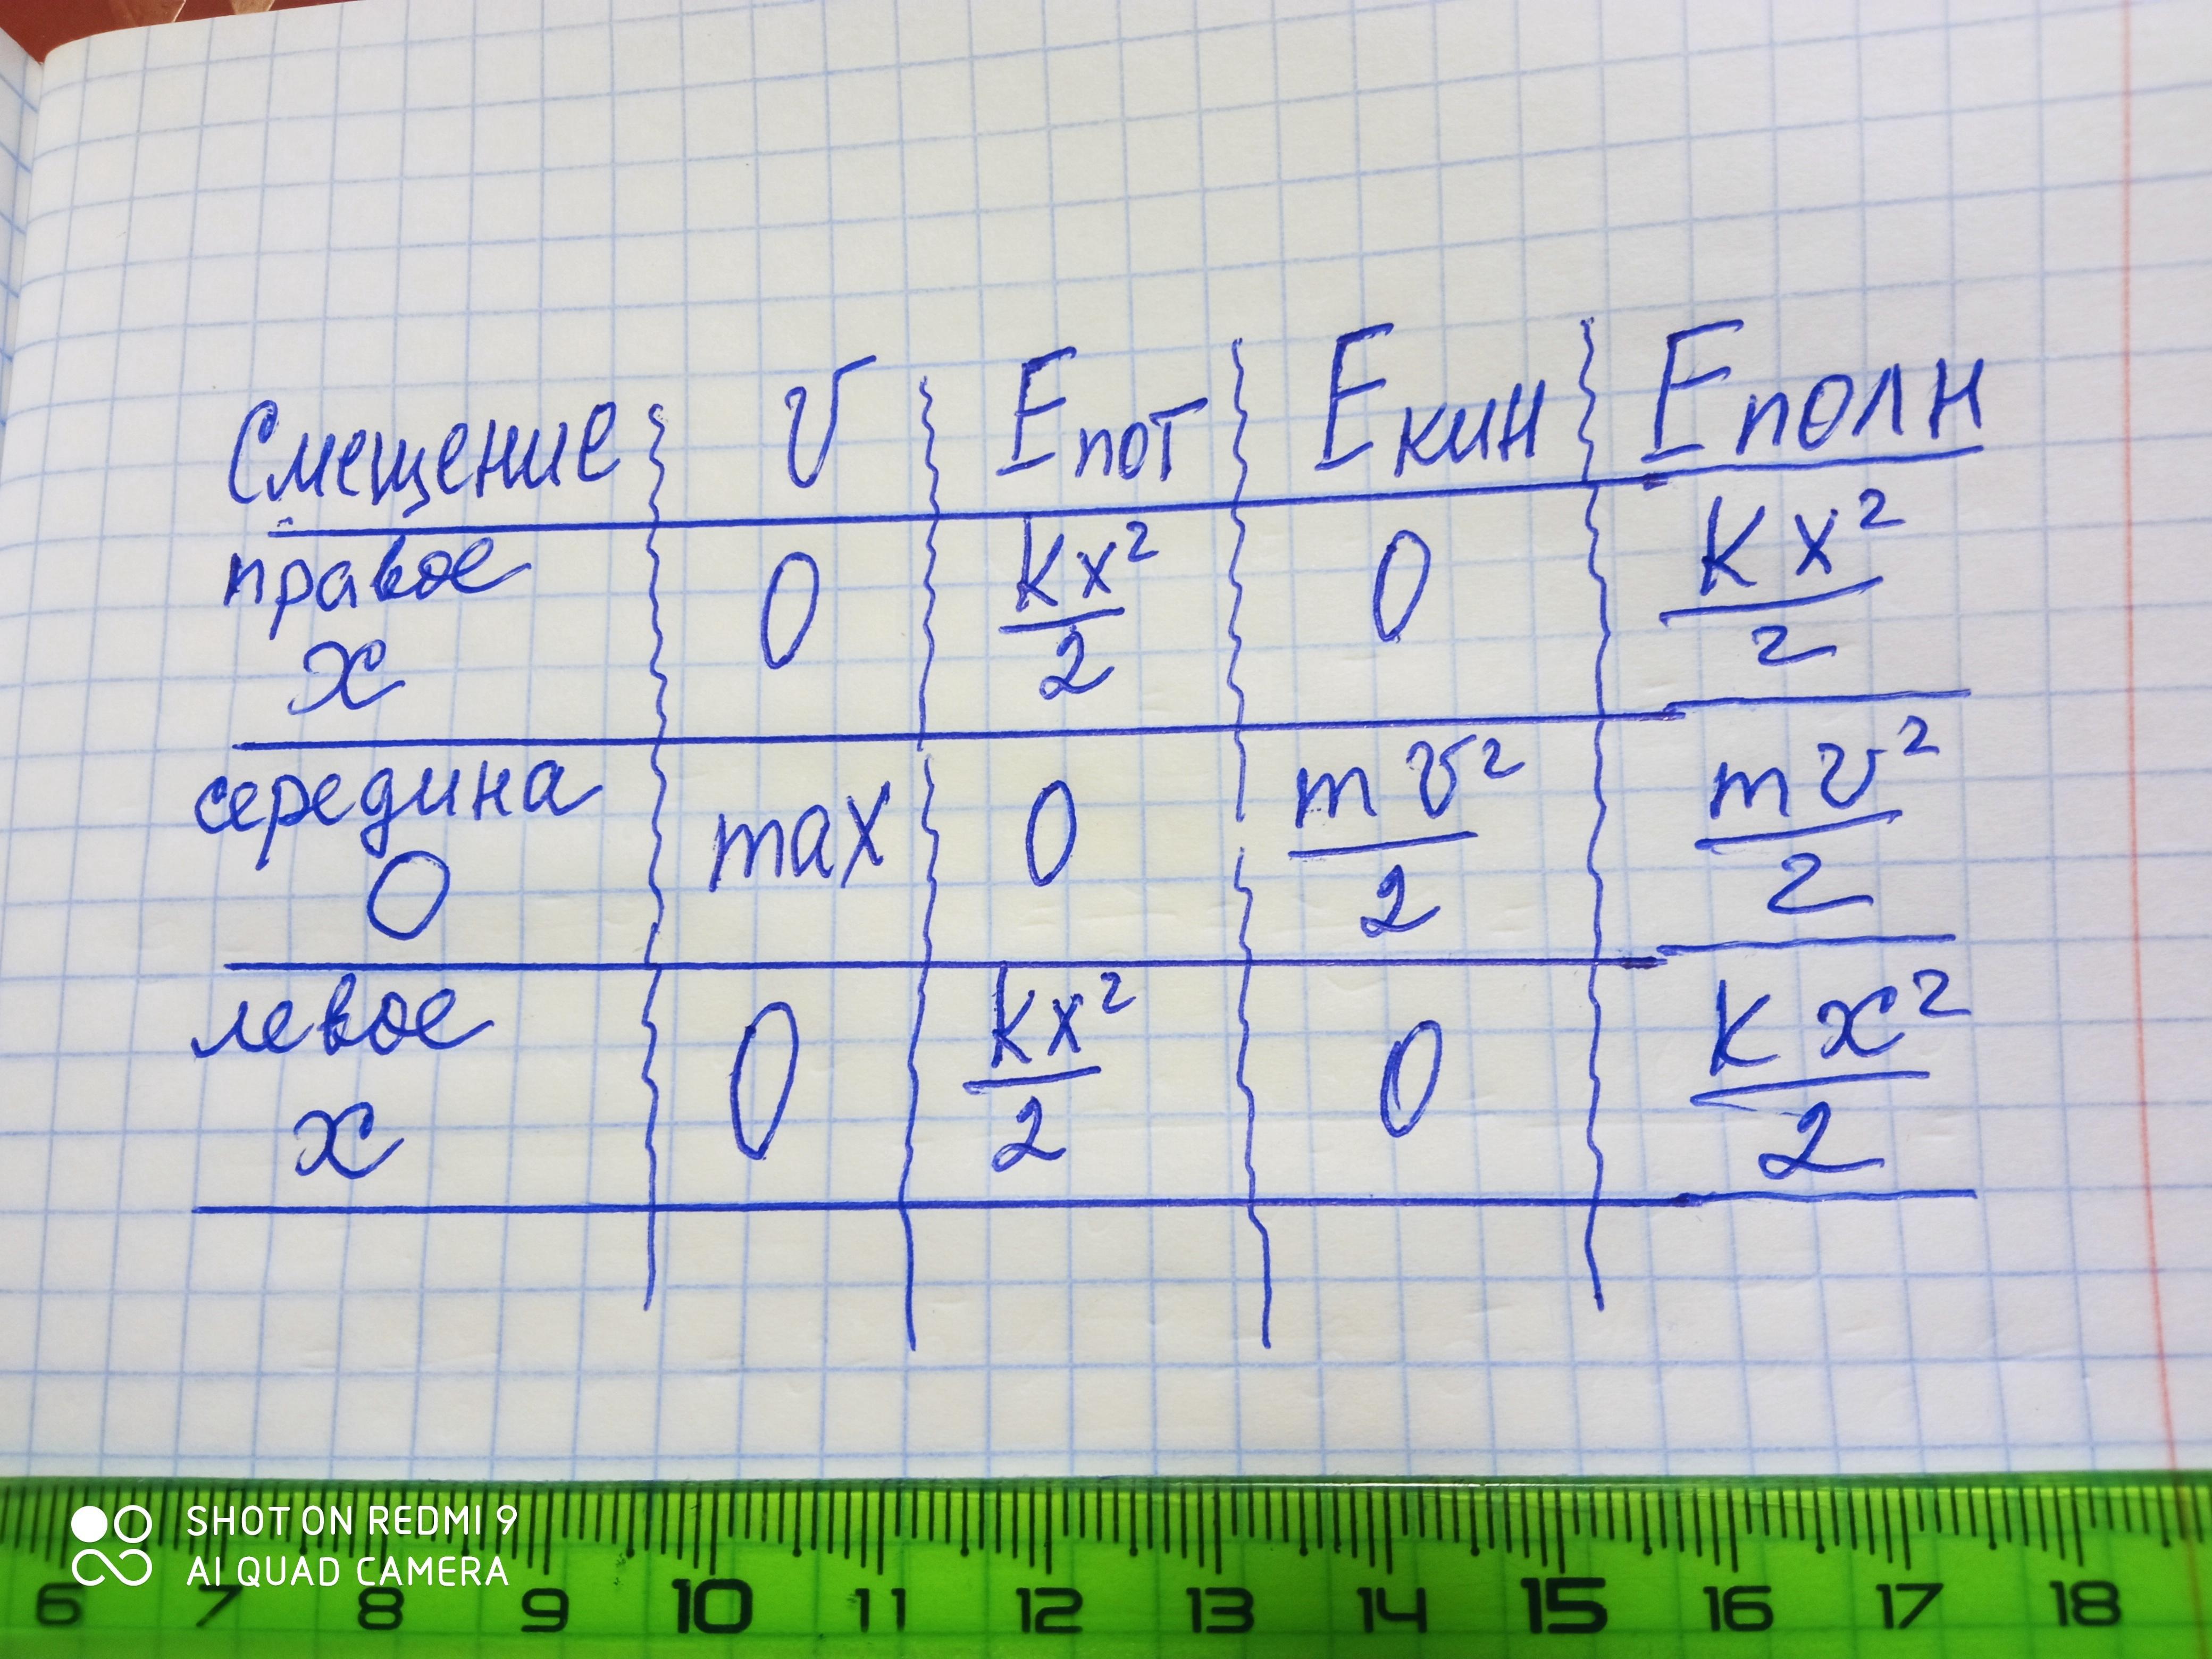 Смещение v Eпот Eкин Eполн
правое x 0 kx²/2 0 kx²/2
середина 0 max 0 mv²/2 mv²/2
левое x 0 kx²/2 0 kx²/2
SHOT ON REDMI 9
AI QUAD CAMERA
6 7 8 9 10 11 12 13 14 15 16 17 18